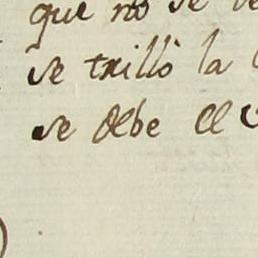 que no se
se trilló la
se debe el